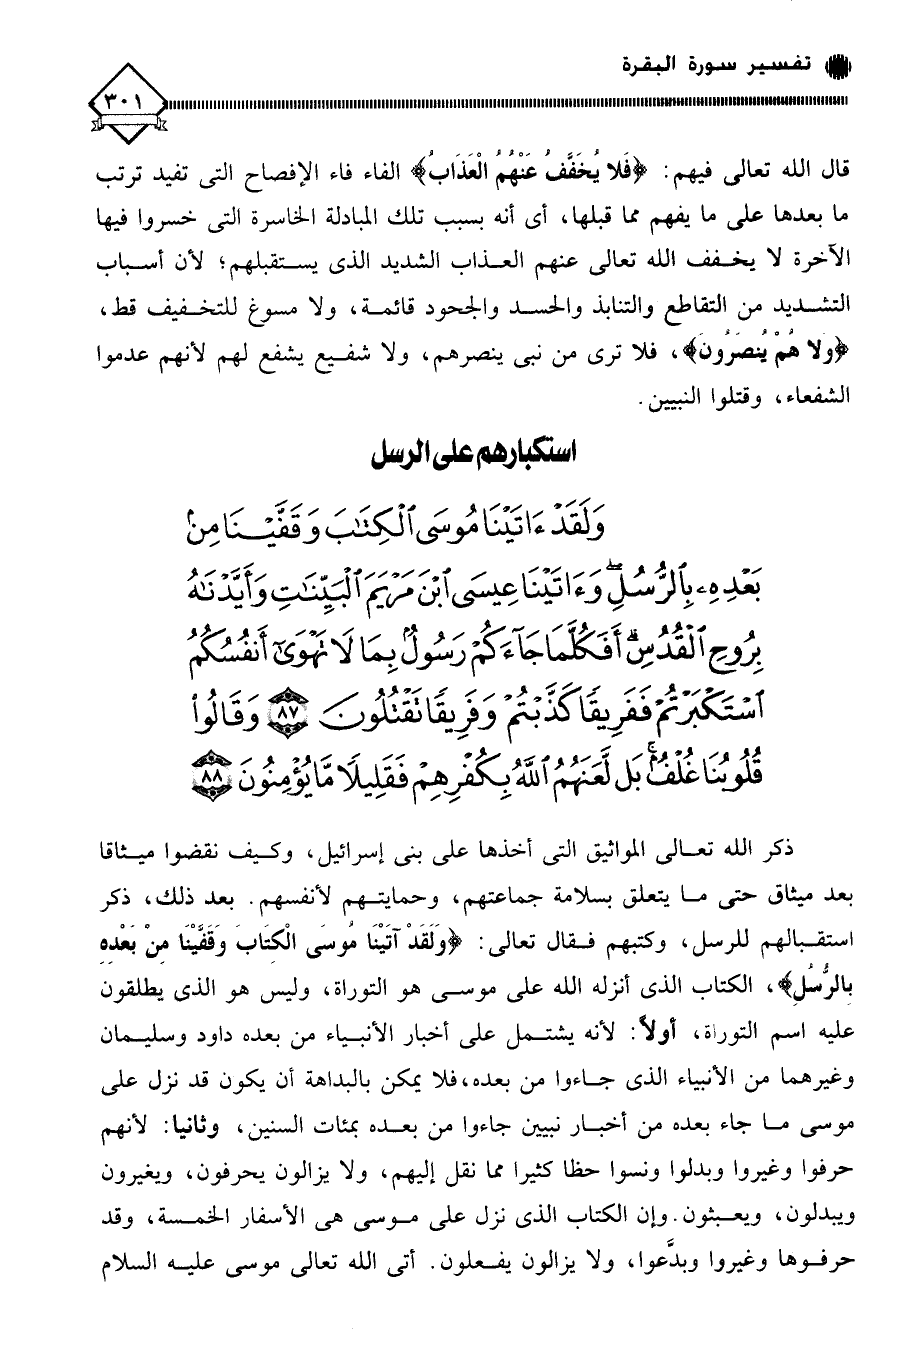 تفسير سورة البقرة
٣٠١
قال الله تعالى فيهم: ﴿فَلا يُخَفَّفُ عَنْهُمُ الْعَذَابُ﴾ الفاء فاء الإفصاح التى تفيد ترتب
ما بعدها على ما يفهم مما قبلها، أى أنه بسبب تلك المبادلة الخاسرة التى خسروا فيها
الآخرة لا يخفف الله تعالى عنهم العذاب الشديد الذى يستقبلهم؛ لأن أسباب
التشديد من التقاطع والتنابذ والحسد والجحود قائمة، ولا مسوغ للتخفيف قط،
﴿ولا هُمْ يُنصَرُونَ﴾، فلا ترى من نبى ينصرهم، ولا شفيع يشفع لهم لأنهم عدموا
الشفعاء، وقتلوا النبيين.
استكبارهم على الرسل
وَلَقَدْ ءَاتَيْنَا مُوسَى ٱلْكِتَٰبَ وَقَفَّيْنَا مِنۢ
بَعْدِهِۦ بِٱلرُّسُلِۖ وَءَاتَيْنَا عِيسَى ٱبْنَ مَرْيَمَ ٱلْبَيِّنَٰتِ وَأَيَّدْنَٰهُ
بِرُوحِ ٱلْقُدُسِۗ أَفَكُلَّمَا جَآءَكُمْ رَسُولٌۢ بِمَا لَا تَهْوَىٰٓ أَنفُسُكُمُ
ٱسْتَكْبَرْتُمْ فَفَرِيقًا كَذَّبْتُمْ وَفَرِيقًا تَقْتُلُونَ ٨٧ وَقَالُوا۟
قُلُوبُنَا غُلْفٌۢۚ بَل لَّعَنَهُمُ ٱللَّهُ بِكُفْرِهِمْ فَقَلِيلًا مَّا يُؤْمِنُونَ ٨٨
ذكر الله تعالى المواثيق التى أخذها على بنى إسرائيل، وكيف نقضوا ميثاقا
بعد ميثاق حتى ما يتعلق بسلامة جماعتهم، وحمايتهم لأنفسهم. بعد ذلك، ذكر
استقبالهم للرسل، وكتبهم فقال تعالى: ﴿وَلَقَدْ آتَيْنَا مُوسَى الْكِتَابَ وَقَفَّيْنَا مِنْ بَعْدِهِ
بِالرُّسُلِ﴾، الكتاب الذى أنزله الله على موسى هو التوراة، وليس هو الذى يطلقون
عليه اسم التوراة، أولاً: لأنه يشتمل على أخبار الأنبياء من بعده داود وسليمان
وغيرهما من الأنبياء الذى جاءوا من بعده،فلا يمكن بالبداهة أن يكون قد نزل على
موسى ما جاء بعده من أخبار نبيين جاءوا من بعده بمئات السنين، وثانيا: لأنهم
حرفوا وغيروا وبدلوا ونسوا حظا كثيرا مما نقل إليهم، ولا يزالون يحرفون، ويغيرون
ويبدلون، ويعبثون.وإن الكتاب الذى نزل على موسى هى الأسفار الخمسة، وقد
حرفوها وغيروا وبدَّعوا، ولا يزالون يفعلون. أتى الله تعالى موسى عليه السلام